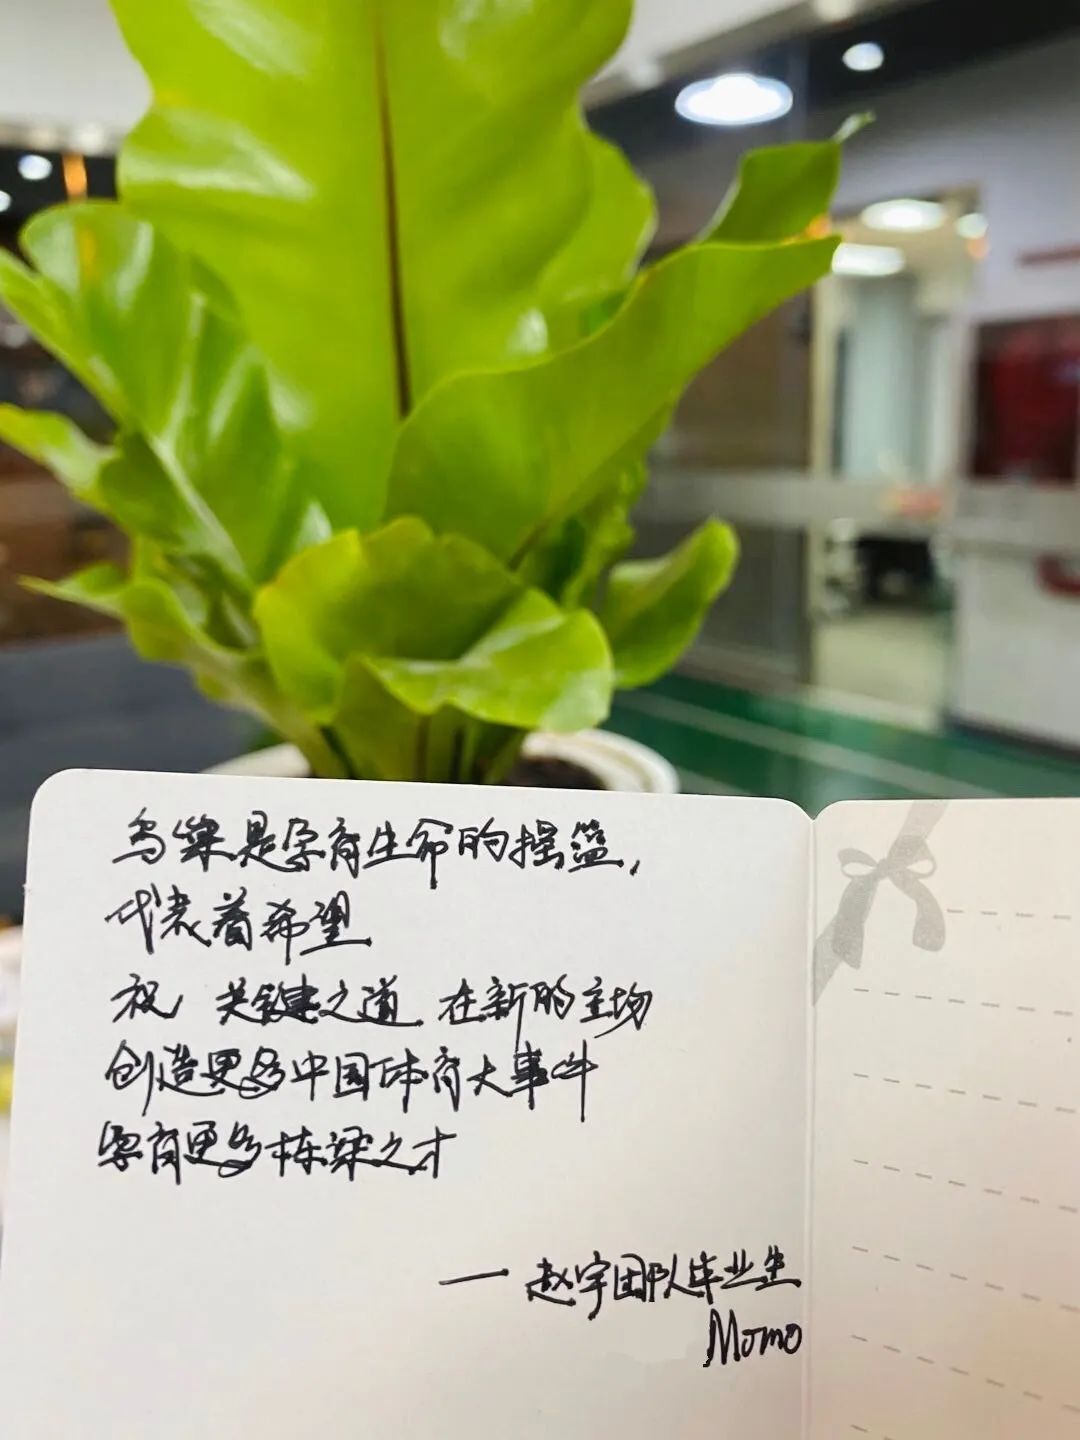 鸟巢是孕育生命的摇篮,
代表着希望
祝 关键之道 在新的主场
创造更多中国体育大事件
孕育更多栋梁之才
— 赵宇团队毕业生
Momo